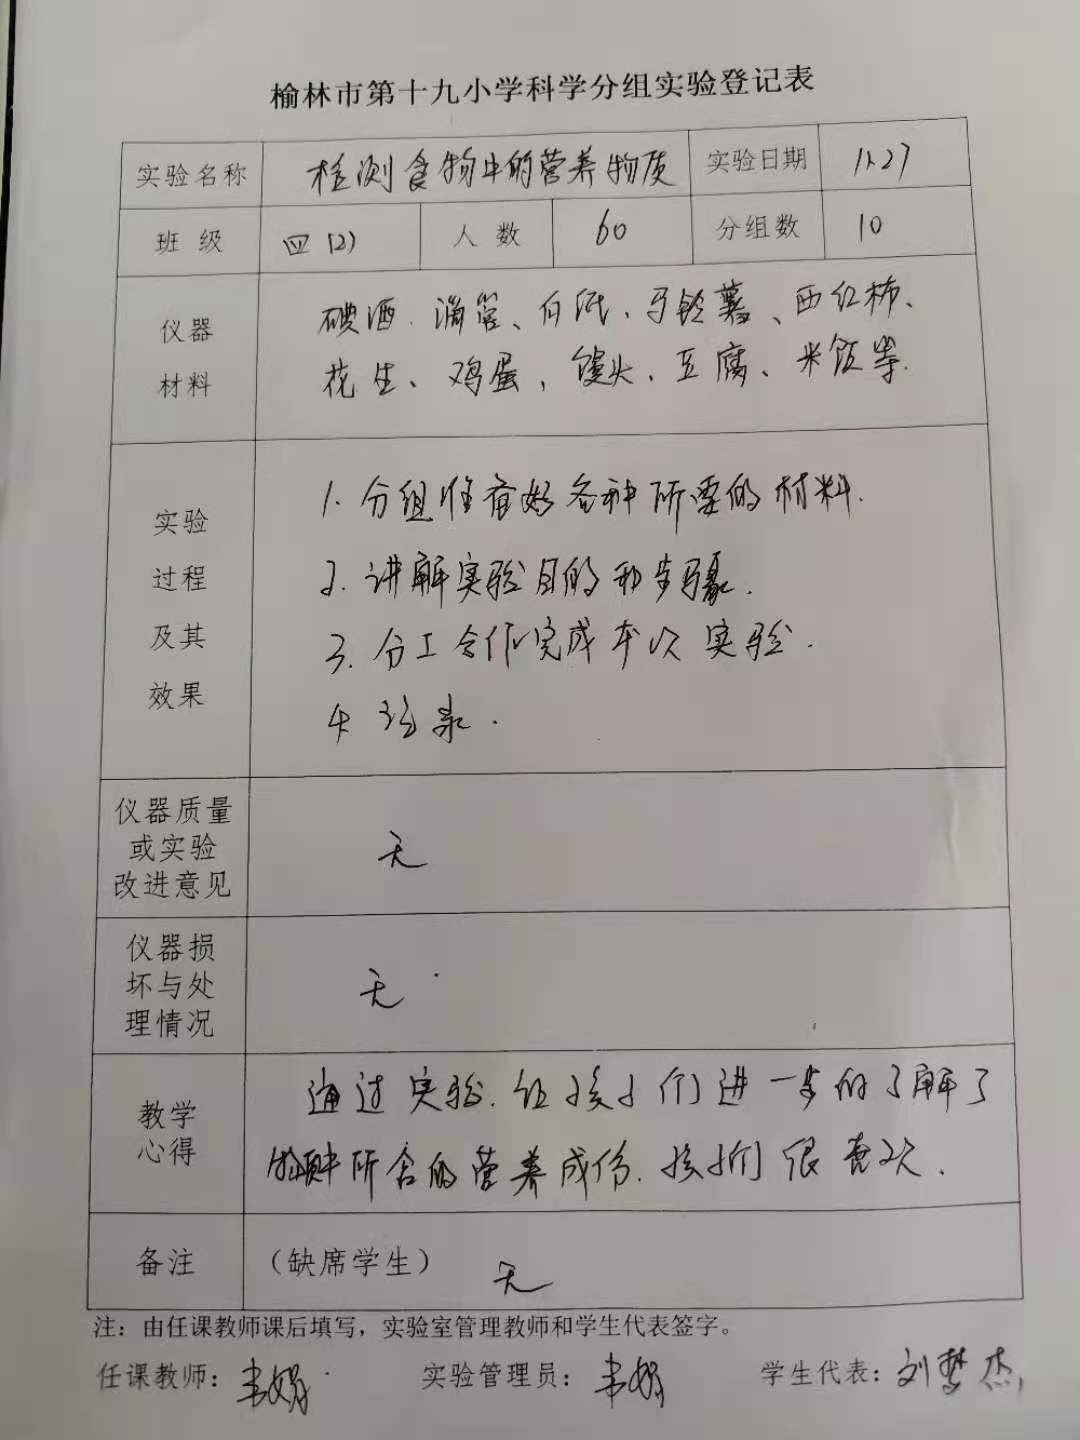 榆林市第十九小学科学分组实验登记表
实验名称 检测食物中的营养物质 实验日期 11.27
班级 四(2) 人数 60 分组数 10
仪器材料
碘酒.滴管、白纸、马铃薯、西红柿、
花生、鸡蛋、馒头、豆腐、米饭等.
实验过程及其效果
1.分组准备好各种所要的材料.
2.讲解实验目的和步骤.
3.分工合作完成本次实验.
4
仪器质量
或实验
改进意见
无
仪器损
坏与处
理情况
无
教学
心得
通过实验.让孩子们进一步的了解了
所含的营养成份.孩子们很喜欢.
备注 (缺席学生) 无
注：由任课教师课后填写，实验室管理教师和学生代表签字。
任课教师： 实验管理员： 学生代表：刘梦杰